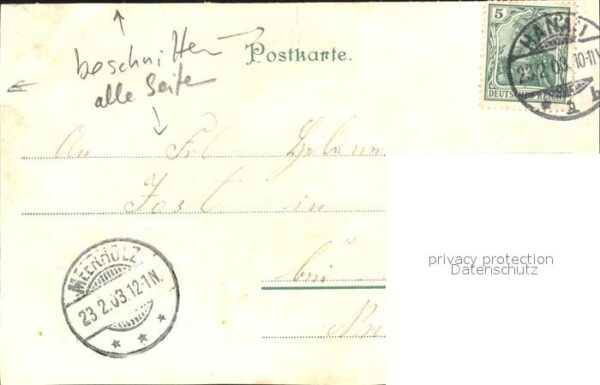 beschnitten
alle Seiten
Postkarte.
5
DEUTSCHES REICH
HANAU
23.2.03.10-11V.
An Frl
Jost in
MEERHOLZ
23.2.03.12-1N.
bei
privacy protection
Datenschutz